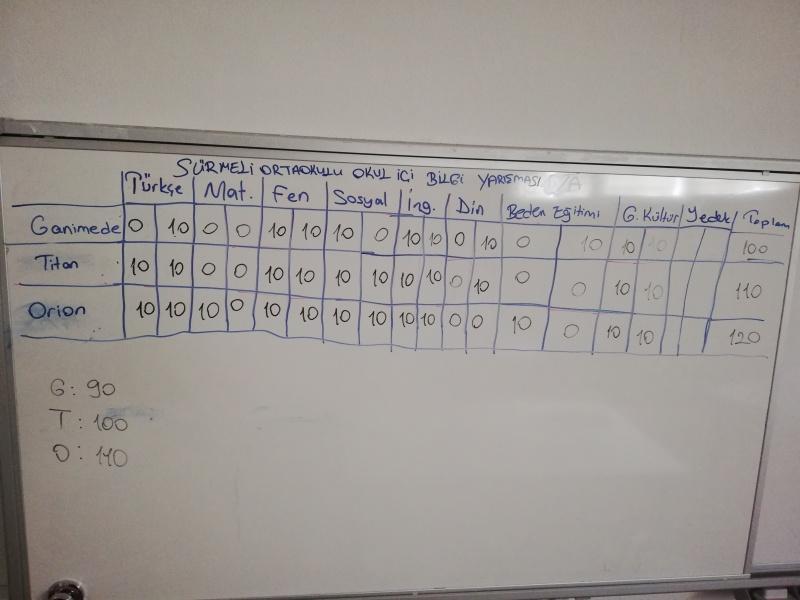 SÜRMELİ ORTAOKULU OKUL İÇİ BİLGİ YARIŞMASI
Türkçe Mat. Fen Sosyal İng. Din Beden Eğitimi G. Kültür Yedek Toplam
Ganimede 0 10 0 0 10 10 10 0 10 10 0 10 0 10 10 10 100
Titan 10 10 0 0 10 10 10 10 10 10 0 10 0 0 10 10 110
Orion 10 10 10 0 10 10 10 10 10 10 0 0 10 0 10 10 120
G: 90
T: 100
O: 110